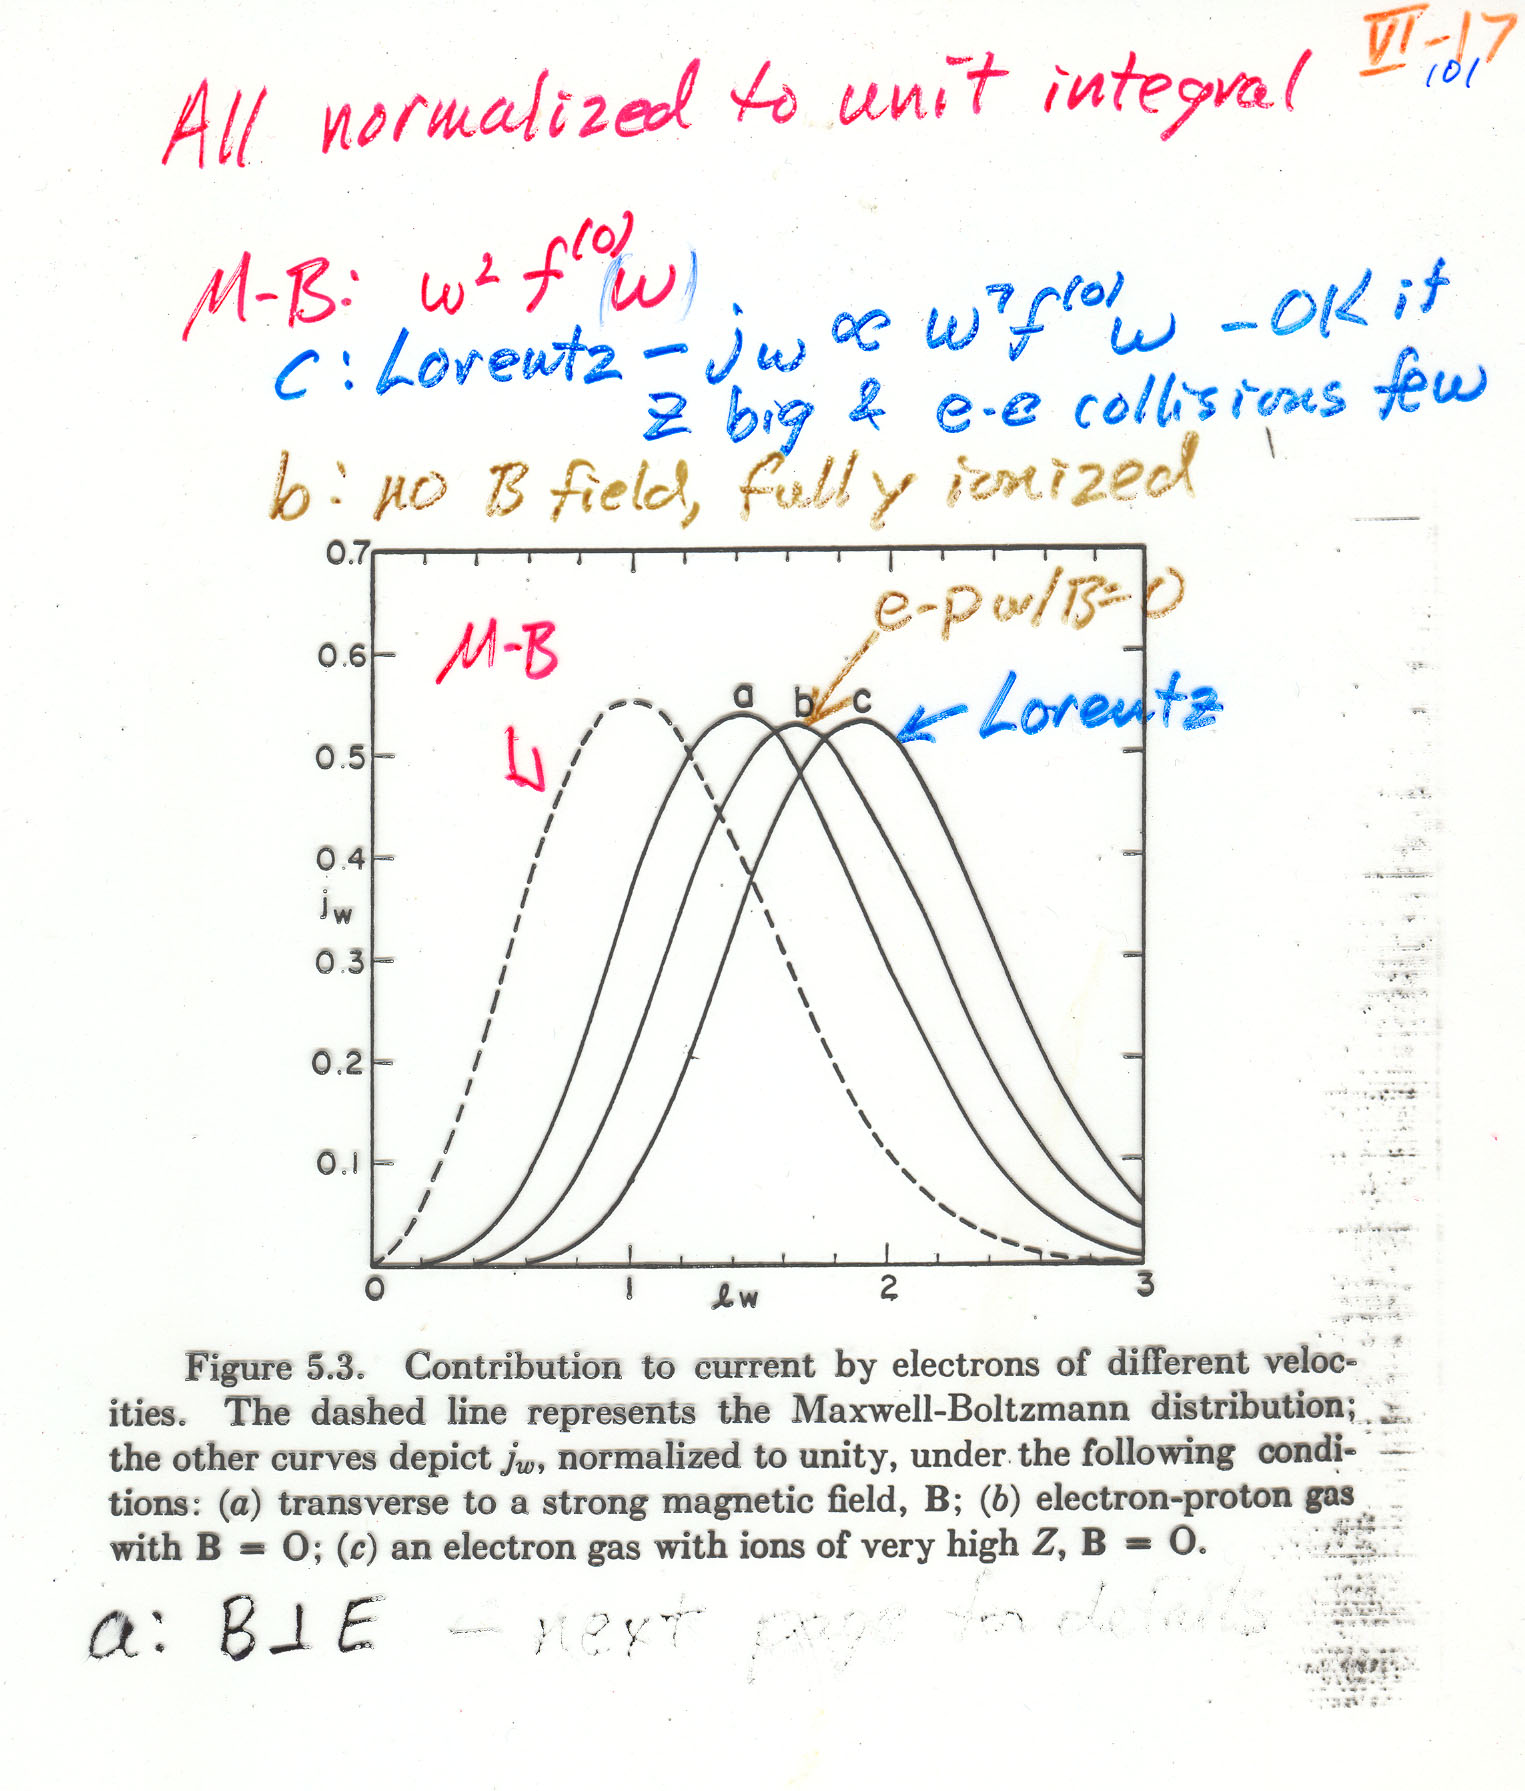 VI-17
101
All normalized to unit integral
M-B: w² f⁽⁰⁾(w)
c: Lorentz – jw ∝ w⁷f⁽⁰⁾w – OK if
Z big & e-e collisions few
b: no B field, fully ionized
0.7
e-p w/B=0
0.6
M-B
a b c
Lorentz
0.5
0.4
jw
0.3
0.2
0.1
0 1 2 3
ℓw
Figure 5.3. Contribution to current by electrons of different veloc-
ities. The dashed line represents the Maxwell-Boltzmann distribution;
the other curves depict jw, normalized to unity, under the following condi-
tions: (a) transverse to a strong magnetic field, B; (b) electron-proton gas
with B = O; (c) an electron gas with ions of very high Z, B = O.
a: B⊥E – next page for details